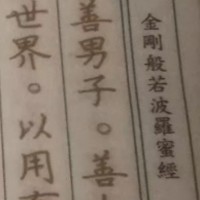 金剛般若波羅蜜經
善男子。善
世界。以用